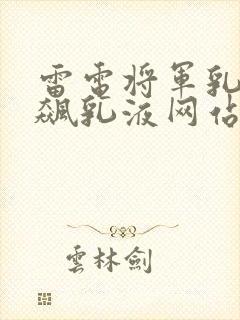 雷電將軍乳
飆乳液网佔
雲林劍